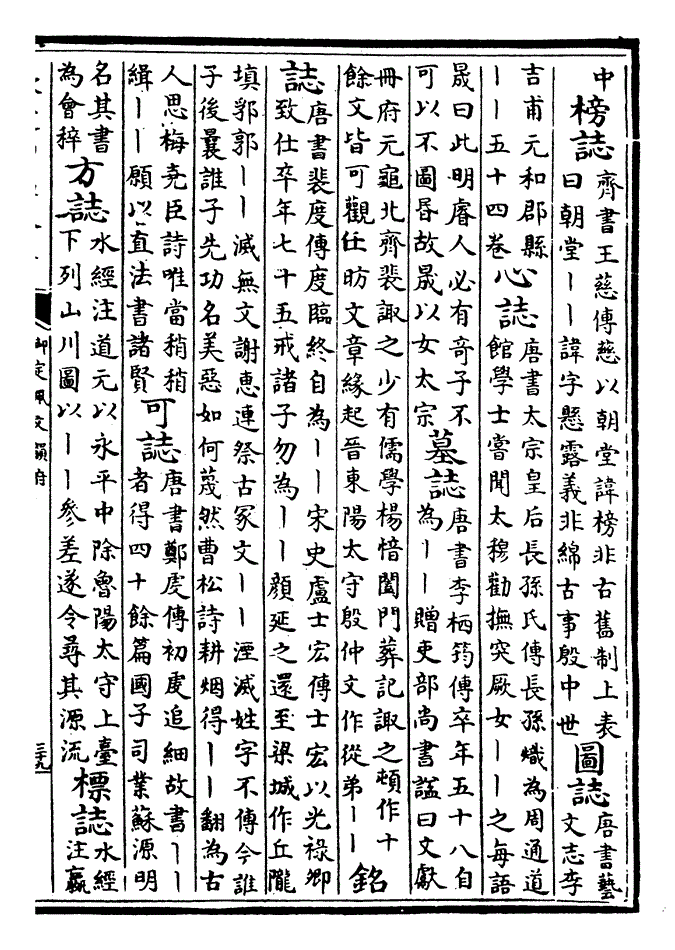 中
榜誌
齊書王慈傳慈以朝堂諱榜非古舊制上表
曰朝堂丨丨諱字懸露義非綿古事殷中世
圖誌
唐書藝
文志李
吉甫元和郡縣
丨丨五十四卷
心誌
唐書太宗皇后長孫氏傳長孫熾為周通道
館學士嘗聞太穆勸撫突厥女丨丨之每語
晟曰此明睿人必有奇子不
可以不圖昏故晟以女太宗
墓誌
唐書李栖筠傳卒年五十八自
為丨丨贈吏部尚書諡曰文獻
冊府元龜北齊裴諏之少有儒學楊愔闔門葬記諏之頓作十
餘文皆可觀任昉文章緣起晉東陽太守殷仲文作從弟丨丨
銘
誌
唐書裴度傳度臨終自為丨丨宋史盧士宏傳士宏以光祿卿
致仕卒年七十五戒諸子勿為丨丨顏延之還至梁城作丘隴
填郛郭丨丨滅無文謝惠連祭古冢文丨丨湮滅姓字不傳今誰
子後曩誰子先功名美惡如何蔑然曹松詩耕烟得丨丨翻為古
人思梅堯臣詩唯當稍稍
緝丨丨願以直法書諸賢
可誌
唐書鄭虔傳初虔追紬故書丨丨
者得四十餘篇國子司業蘇源明
名其書
為會稡
方誌
水經注道元以永平中除魯陽太守上臺
下列山川圖以丨丨參差遂令尋其源流
標誌
水經
注嬴
御定佩文韻府